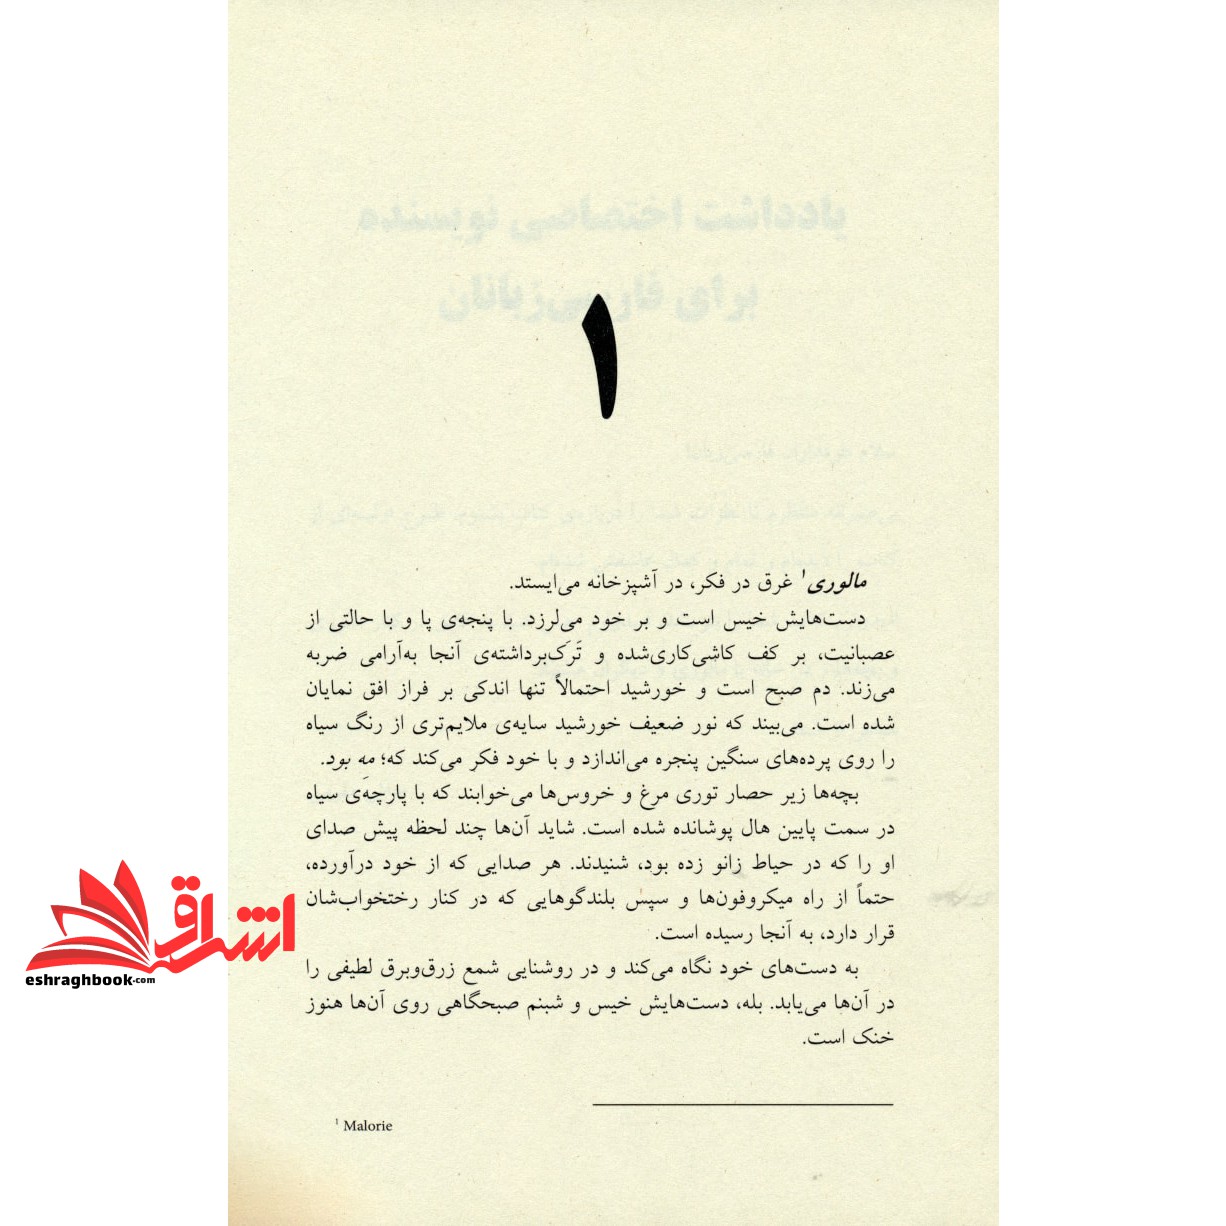 یادداشت اختصاصی نویسنده
برای فارسی‌زبانان
۱
مالوری۱ غرق در فکر، در آشپزخانه می‌ایستد.
دست‌هایش خیس است و بر خود می‌لرزد. با پنجه‌ی پا و با حالتی از
عصبانیت، بر کف کاشی‌کاری‌شده و تَرَک‌برداشته‌ی آنجا به‌آرامی ضربه
می‌زند. دم صبح است و خورشید احتمالاً تنها اندکی بر فراز افق نمایان
شده است. می‌بیند که نور ضعیف خورشید سایه‌ی ملایم‌تری از رنگ سیاه
را روی پرده‌های سنگین پنجره می‌اندازد و با خود فکر می‌کند که؛ مِه بود.
بچه‌ها زیر حصار توری مرغ و خروس‌ها می‌خوابند که با پارچه‌ی سیاه
در سمت پایین هال پوشانده شده است. شاید آن‌ها چند لحظه پیش صدای
او را که در حیاط زانو زده بود، شنیدند. هر صدایی که از خود درآورده،
حتماً از راه میکروفون‌ها و سپس بلندگوهایی که در کنار رختخواب‌شان
قرار دارد، به آنجا رسیده است.
به دست‌های خود نگاه می‌کند و در روشنایی شمع زرق‌وبرق لطیفی را
در آن‌ها می‌یابد. بله، دست‌هایش خیس و شبنم صبحگاهی روی آن‌ها هنوز
خنک است.
1 Malorie
اشراق
eshraghbook.com